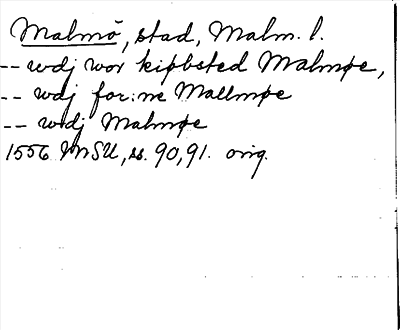 Malmö, stad, Malm. l.
-- wdj wor kipbsted Malmøe,
-- wdj for:ne Mallmøe
-- wdj Malmøe
1556 MSU, ss. 90, 91. orig.